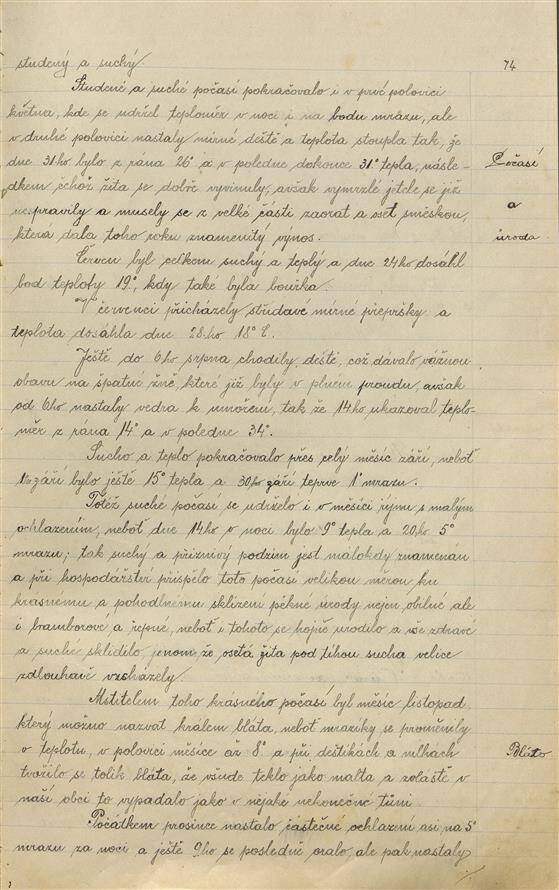 studený a suchý.
74
Studené a suché počasí pokračovalo i v prvé polovici
května, kde se udržel teploměr v noci i na bodu mrazu, ale
v druhé polovici nastaly mírné deště a teplota stoupla tak, že
dne 31ho bylo z rána 26° a v poledne dokonce 31° tepla, násle-
Počasí
dkem čehož žita se dobře vyvinuly, avšak vymrzlé jetele se již
nespravily a musely se z velké části zaorat a oset směskou,
a
která dala toho roku znamenitý výnos.
úroda.
Červen byl celkem suchý a teplý a dne 24ho dosáhl
bod teploty 19°, kdy také byla bouřka.
V červenci přicházely střídavé mírné přepršky a
teplota dosáhla dne 28.ho 18° C.
Ještě do 6ho srpna chodily deště, což dávalo vážnou
obavu na špatné žně, které již byly v plném proudu, avšak
od 6ho nastaly vedra k umoření, tak že 14ho ukazoval teplo-
měr z rána 14° a v poledne 34°.
Sucho a teplo pokračovalo přes celý měsíc září, neboť
1ho září bylo ještě 15° tepla a 30ho září teprve 1° mrazu.
Totéž suché počasí se udrželo i v měsíci říjnu s malým
ochlazením, neboť dne 14ho v noci bylo 9° tepla a 20.ho 5°
mrazu; tak suchý a příznivý podzim jest málokdy znamenán
a při hospodářství přispělo toto počasí velikou měrou ku
krásnému a pohodlnému sklizení pěkné úrody nejen obilné ale
i bramborové a řepné, neboť i tohoto se hojně urodilo a vše zdravé
a suché sklidilo, jenom že osetá žita pod tíhou sucha velice
zdlouhavě vzcházely.
Mstitelem toho krásného počasí byl měsíc listopad,
který možno nazvat králem bláta, neboť mrazíky se proměnily
v teplotu, v polovici měsíce až 8° a při deštíkách a mlhách
Bláto
tvořilo se tolik bláta, že všude teklo jako malta a zvláště v
naší obci to vypadalo jako v nějaké nekonečné tůni.
Počátkem prosince nastalo částečné ochlazení asi na 5°
mrazu za noci a ještě 9.ho se posledně oralo, ale pak nastaly